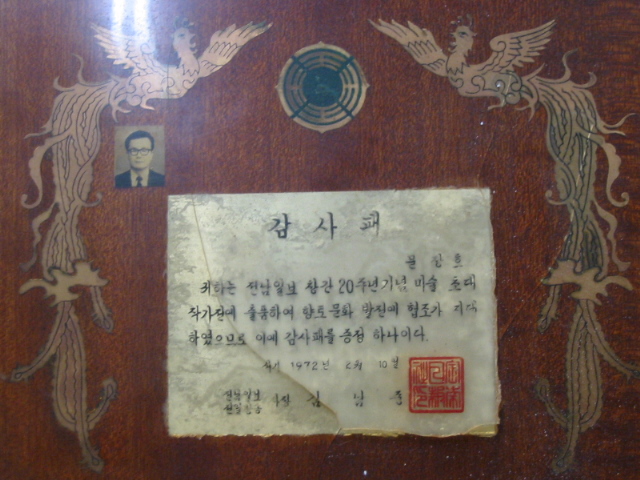 감사패
귀하는 전남일보 창간 20주년기념 미술 초대
작가전에 출품하여 향토문화 발전에 협조가 지대
하였으므로 이에 감사패를 증정 하나이다.
서기 1972년 2월 10일
전남일보
사장 김 남 중